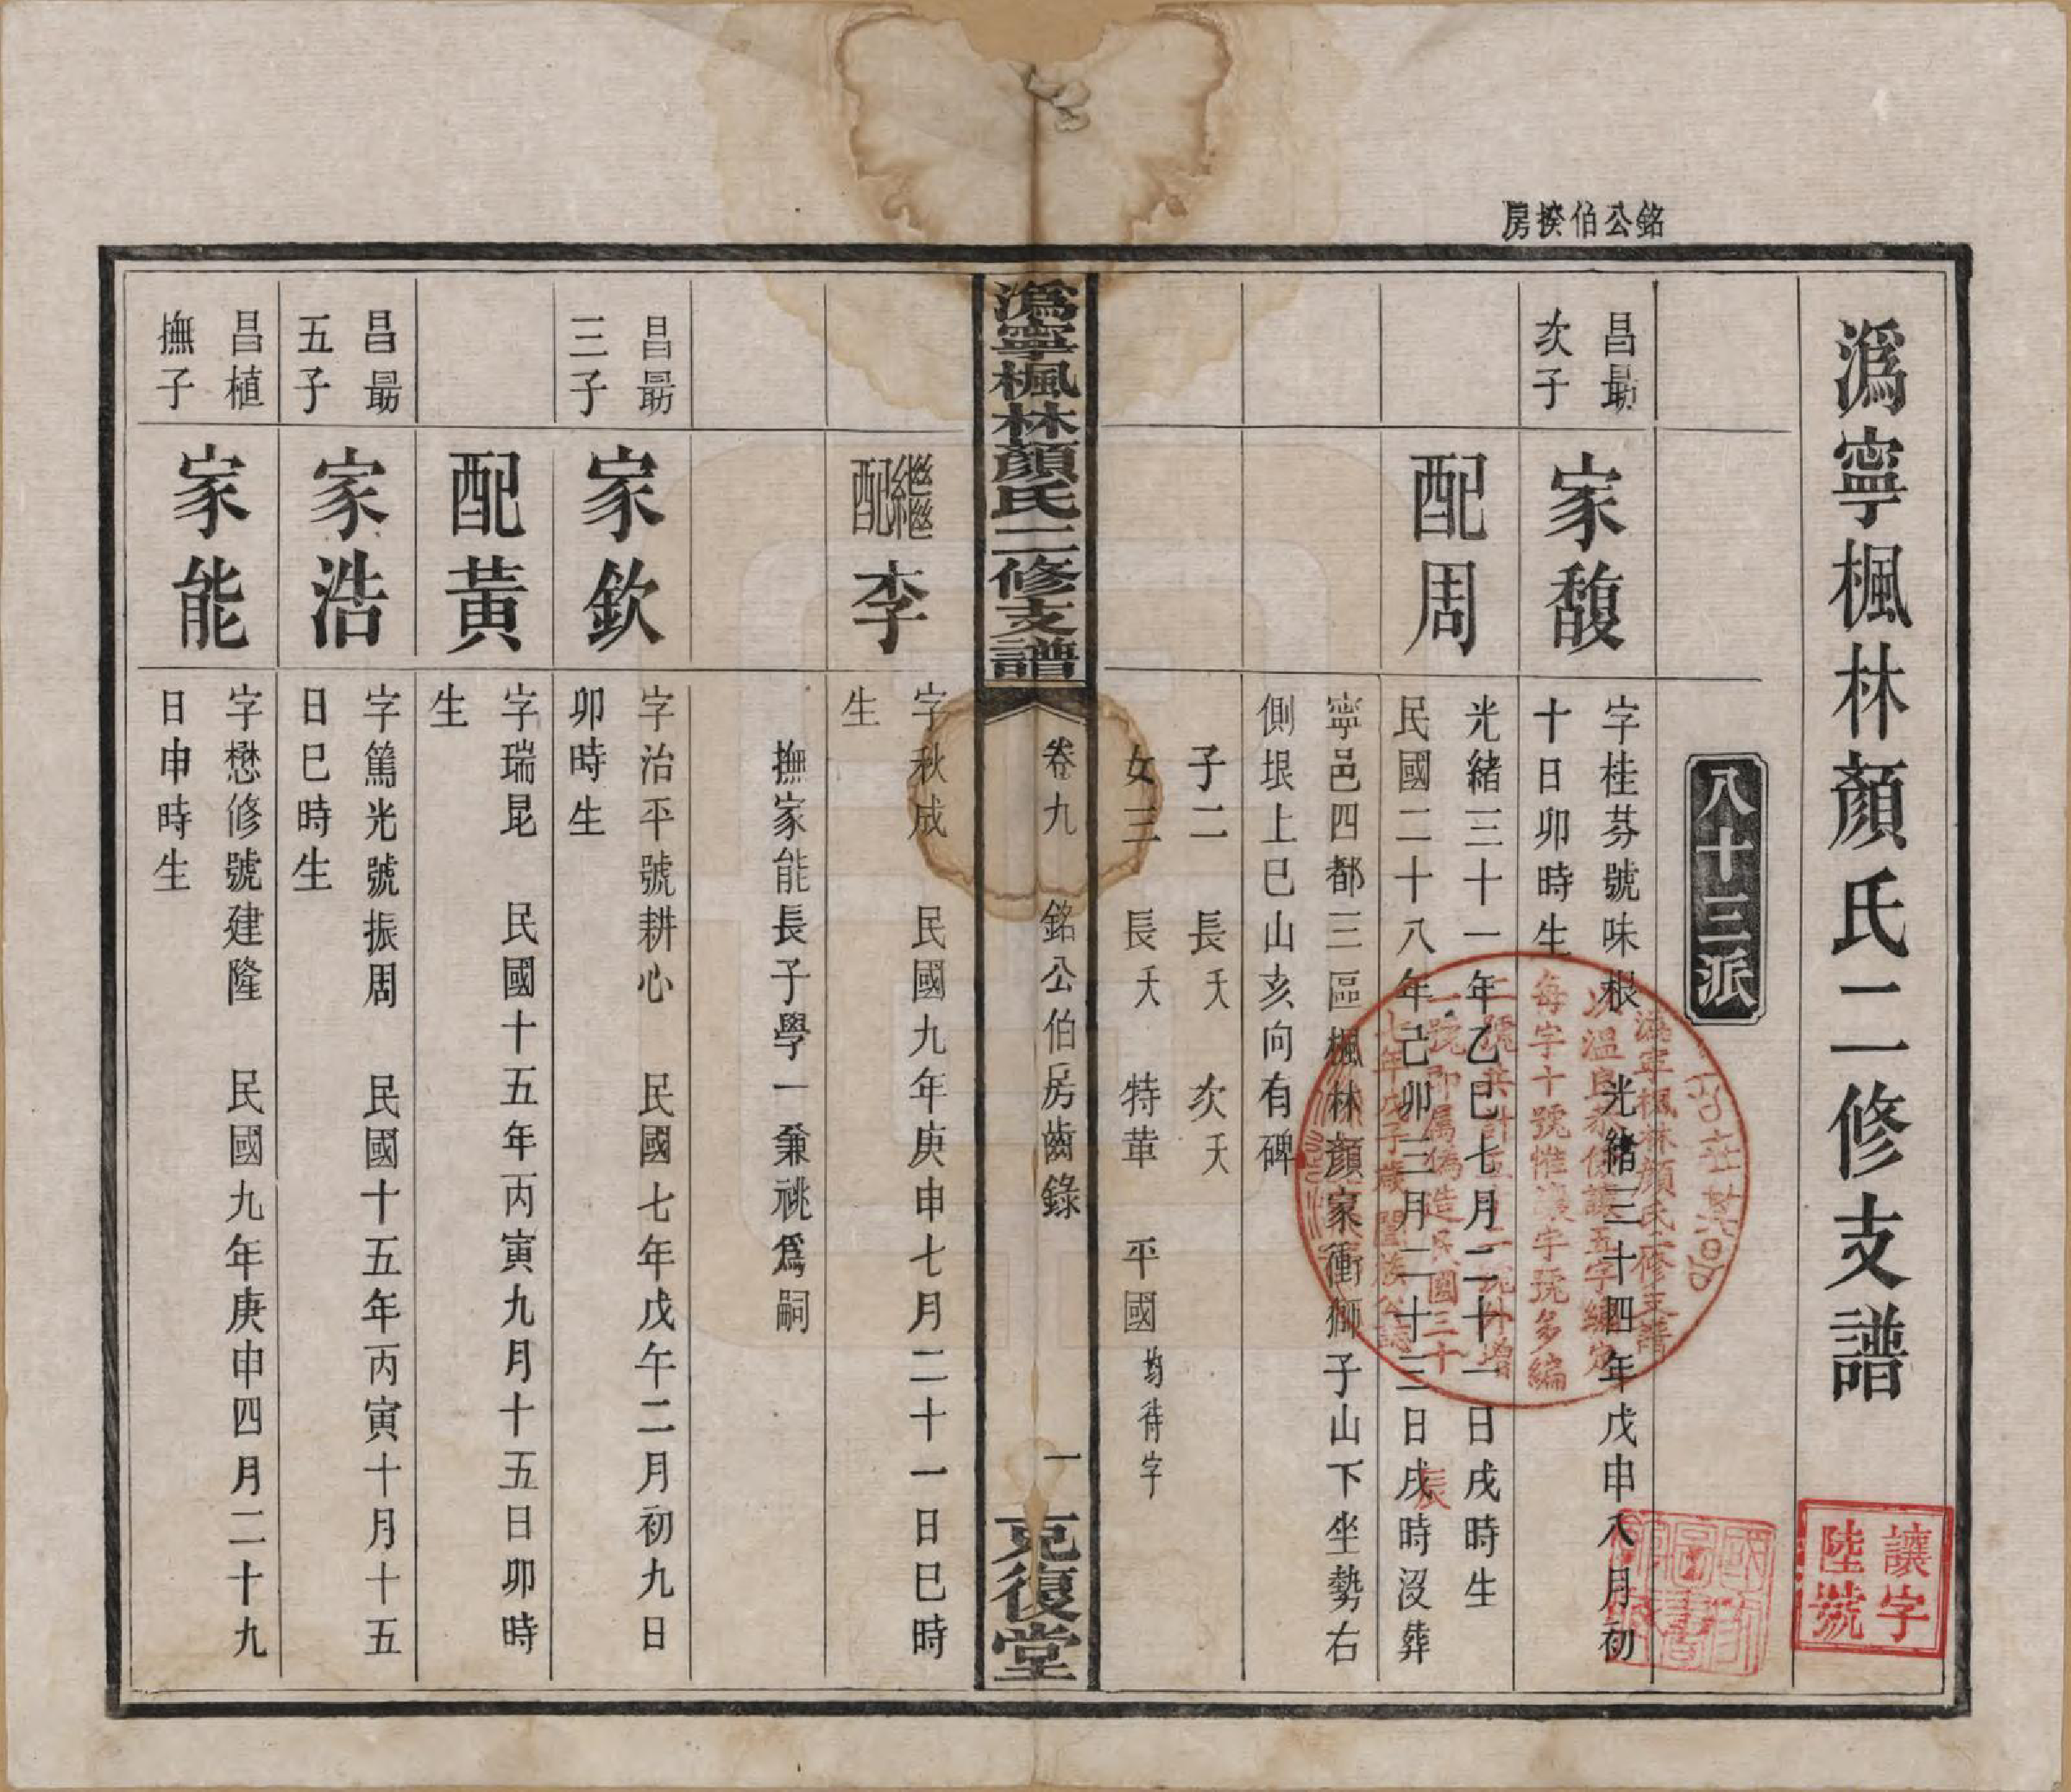 銘公伯揆房
溈寧楓林顏氏二修支譜
讓字
陸號
八十三派
昌最
次子
家馥
字桂芬號味根　光緒三十四年戊申八月初
十日卯時生
配周
光緒三十一年乙巳七月二十一日戌時生
民國二十八年己卯三月二十三日戌時沒葬
辰
寧邑四都三區楓林顏家衝獅子山下坐勢右
側垠上巳山亥向有碑
子二　長夭　次夭
女三　長夭　特華　平國均待字
溈寧楓林顏氏二修支譜
以溫良恭儉讓五字編定
每字十號惟讓字號多編
二號共計五十二號外增
一號即属偽造民國三十
七年戊子歲闔族公誌
溈寧楓林顏氏二修支譜
卷九　銘公伯房齒錄
一
克復堂
繼配李
字秋成　民國九年庚申七月二十一日巳時
生
撫家能長子學一兼祧爲嗣
昌最
三子
家欽
字治平號耕心　民國七年戊午二月初九日
卯時生
配黃
字瑞昆　民國十五年丙寅九月十五日卯時
生
昌最
五子
家浩
字篤光號振周　民國十五年丙寅十月十五
日巳時生
昌植
撫子
家能
字懋修號建隆　民國九年庚申四月二十九
日申時生